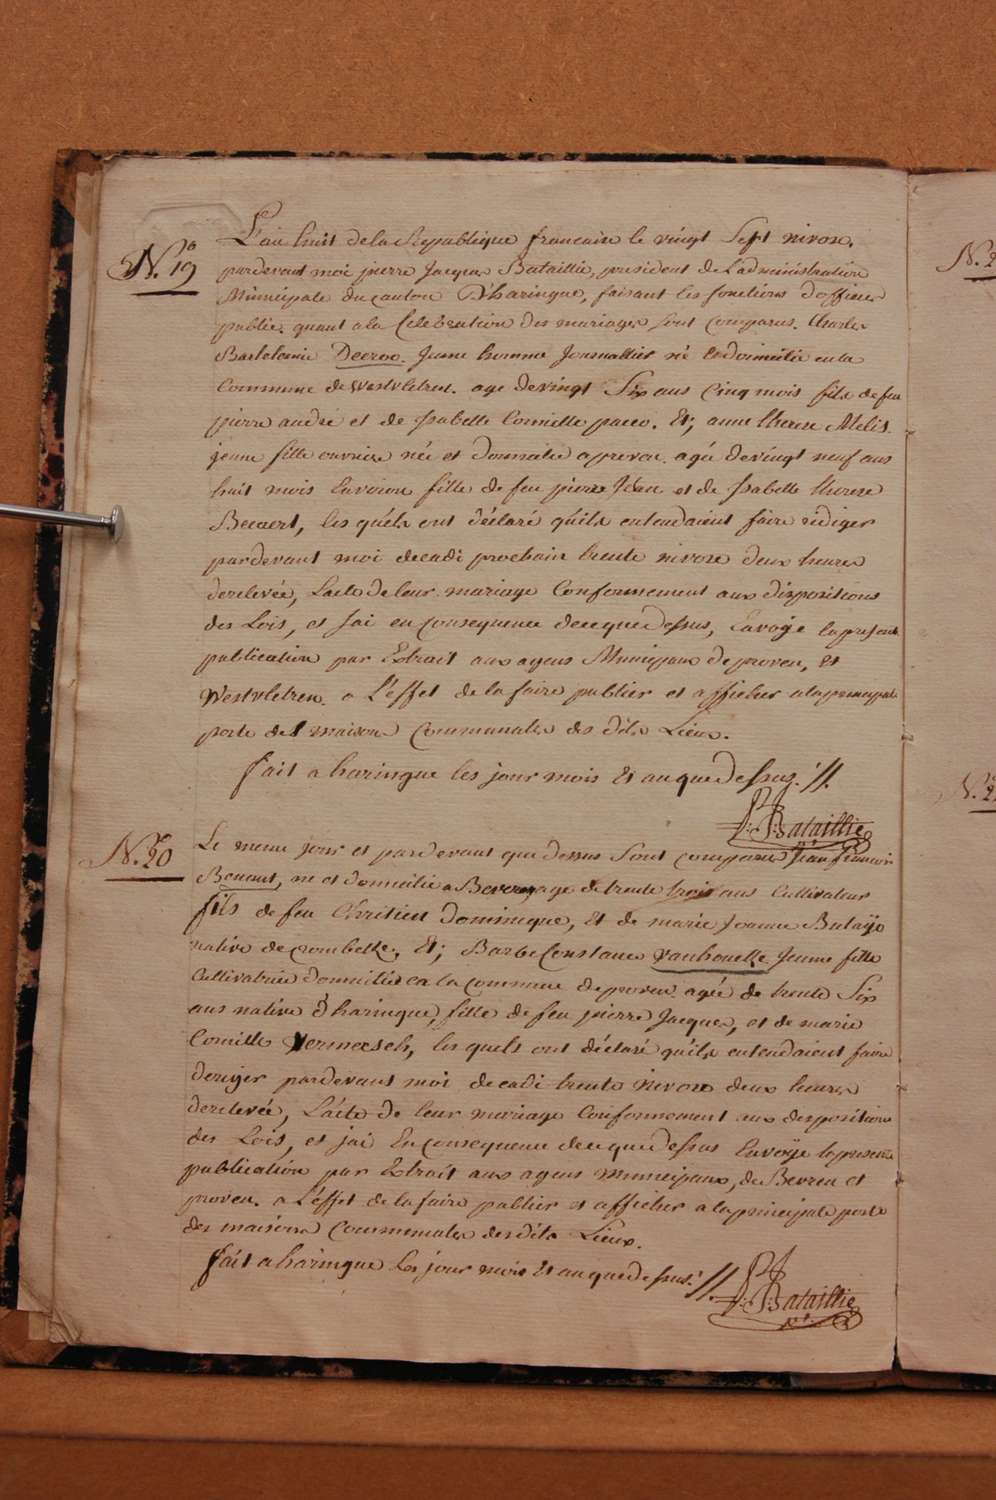 N.º 19
L'an huit de la Republique francaise le vingt Sept nivose.
pardevant moi pierre Jacques Bataillie, president de L'administration
Municipale du canton D'haringue, faisant les fonctions d'officier
public. quant a la Celebration des mariages sont comparus. Charles
Bartelemie Decroo. Jeune homme Journallier né et domicilié en la
Commune de Westvletren. age de vingt Six ans Cinq mois fils de feu
pierre andré et de Isabelle Cornille pacco. Et, anne therese Melis
jeune fille ouvriere née et domicilie a proven. agée de vingt neuf ans
huit mois Environ fille de feu pierre Jean et de Isabelle therese
Becaert, les quels ont déclaré quils entendaient faire rédiger
pardevant moi decadi prochain trente nivose deux heures
de relevée, L'acte de leur mariage Conformement aux dispositions
des Lois, et J'ai en consequence de ce que dessus, Envoÿe la presente
publication par Extrait aux agens Municipaux de proven, et
Westvletren. a L'effet de la faire publier et afficher a la principale
porte des maisons Communales des dits Lieux.
fait a haringue les jour mois Et an que dessus.//.
P: J: Bataillie
N.º 20
Le meme jour et pardevant que dessus Sont comparus Jean francois
Benaut, né et domicilié a Beveren age de trente trois ans Cultivateur
fils de feu Chritien Dominique, Et de marie Joanne Butaÿe
native de crombeke, Et; Barbe Constance vanhouelke Jeune fille
Cultivatrice domiciliée en la commune de proven agée de trente Six
ans native d'haringue, fille de feu pierre Jacques, et de marie
Cornille Vermeesch, les quels ont déclaré quils entendaient faire
deriger pardevant moi decadi trente nivose deux heures
de relevée, L'acte de leur mariage Conformement aux dispositions
des Lois, et j'ai En consequence de ce que dessus Envoÿe la presente
publication par Extrait aux agens municipaux, de Bevren et
proven. a L'effet de la faire publier et afficher a la principale porte
des maisons Communales des dits Lieux.
fait a haringue les jour mois Et an que dessus.//.
P: J: Bataillie
N.º 2
N.º 2